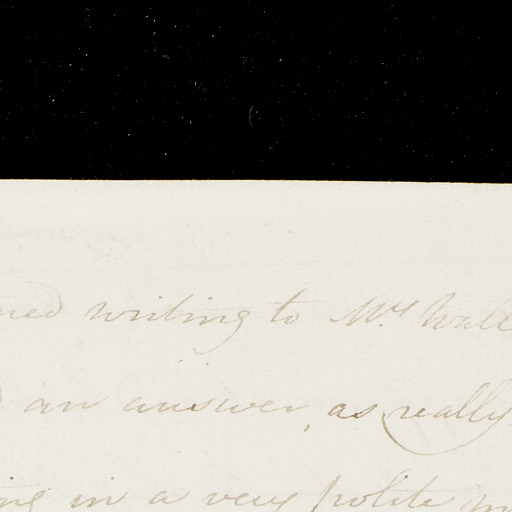 ned writing to Mrs Wall
an answer, as really
ing in a very polite m